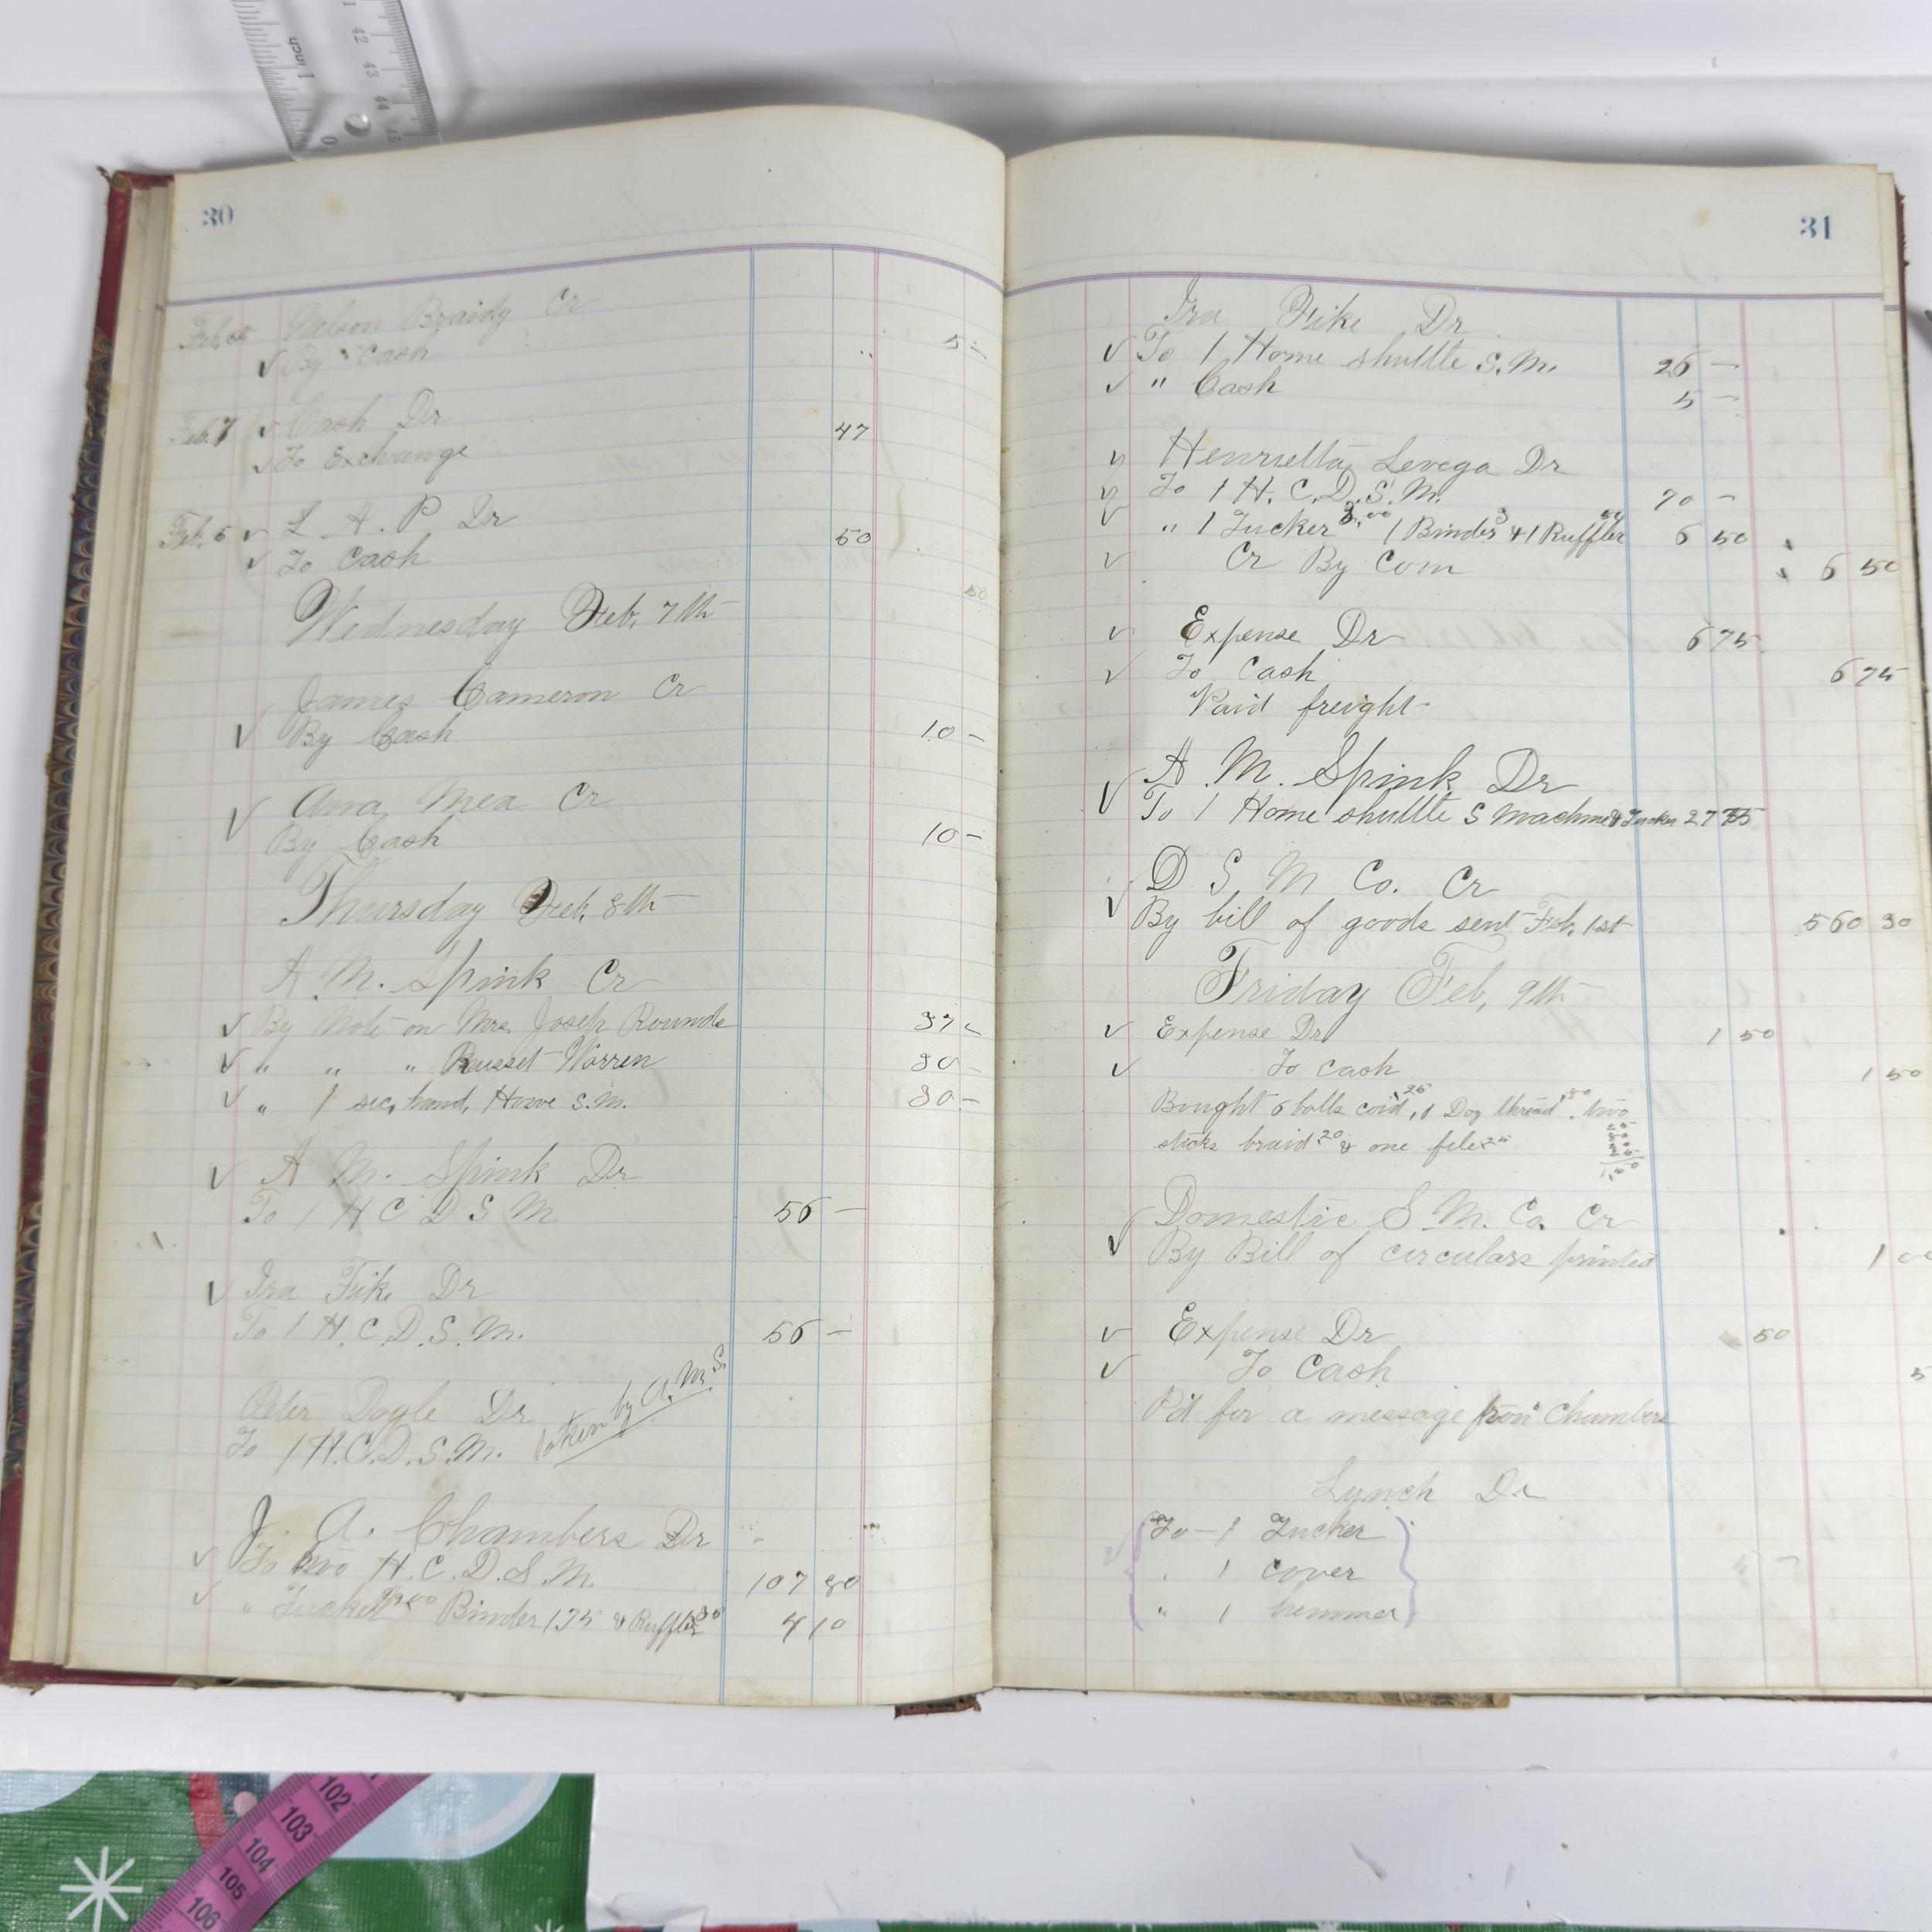 1 inch
0
42
43
44
45
30
Nelson Braidy Cr
By Cash 5 -
Feb. 7 Cash Dr 47
To Exchange
Feb. 6 L. A. P Dr 50
To Cash
50
Wednesday Feb, 7th
James Cameron Cr
By Cash 10 -
Cr
By Cash 10 -
Thursday Feb, 8th
A. M. Spink Cr
By Note on Mrs. Joseph Rounds 37 -
" " " Russet Warren 30 -
" 1 sec, hand, Howe S.M. 30 -
A M. Spink Dr
To 1 H C D S M 56 -
Ira Fike Dr
To 1 H.C.D.S.M. 56 -
Peter Doyle Dr
To 1 H.C.D.S.M. taken by A.M.S.
J. A. Chambers Dr
To two H.C.D.S.M. 107 80
" Tucker Binder 175 & Ruffler 4 10
31
Ira Fike Dr
To 1 Home shuttle S.M. 26 -
" Cash 5 -
Henrietta Levega Dr
To 1 H. C. D. S. M. 70 -
" 1 Tucker 3,00 1 Binder 3 & 1 Ruffler 50 6 50
Cr By Com 6 50
Expense Dr 6 75
To Cash 6 75
Paid freight
A. M. Spink Dr
To 1 Home shuttle S Machine & Tucker 27 75
D S M Co. Cr
By bill of goods sent Feb, 1st 560 30
Friday Feb, 9th
Expense Dr 1 50
To Cash 1 50
Bought 6 balls cord, 25, 1 Doz thread 80, two
sticks braid 20 & one file 25
Domestic S. M. Co. Cr
By Bill of circulars printed 1 00
Expense Dr 50
To Cash 5
P'd for a message from Chambers
Lynch Dr
To - 1 Tucker
" 1 cover 5 -
" 1 hemmer
102
103
104
105
106